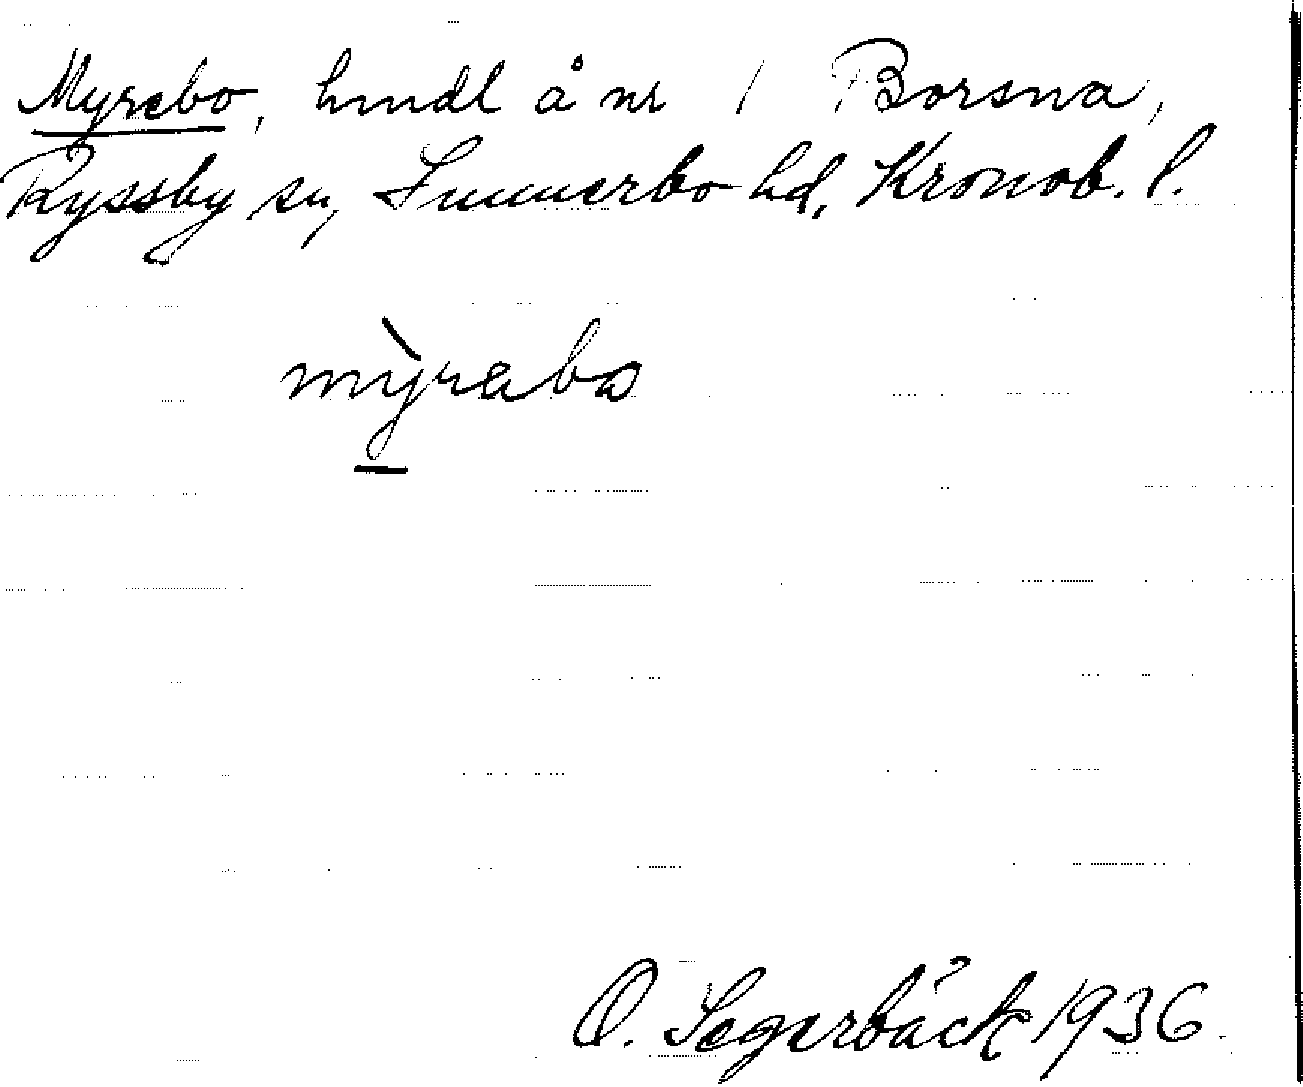 Myrebo, hmdl å nr 1 Borsna,
Ryssby sn, Sunnerbo hd, Kronob. l.
mỳrabo
O. Segerbäck 1936.